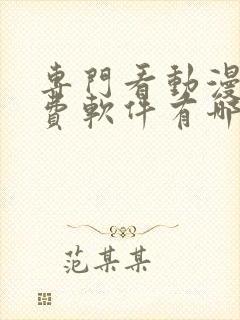 專門看動漫
費軟件有哪
范某某